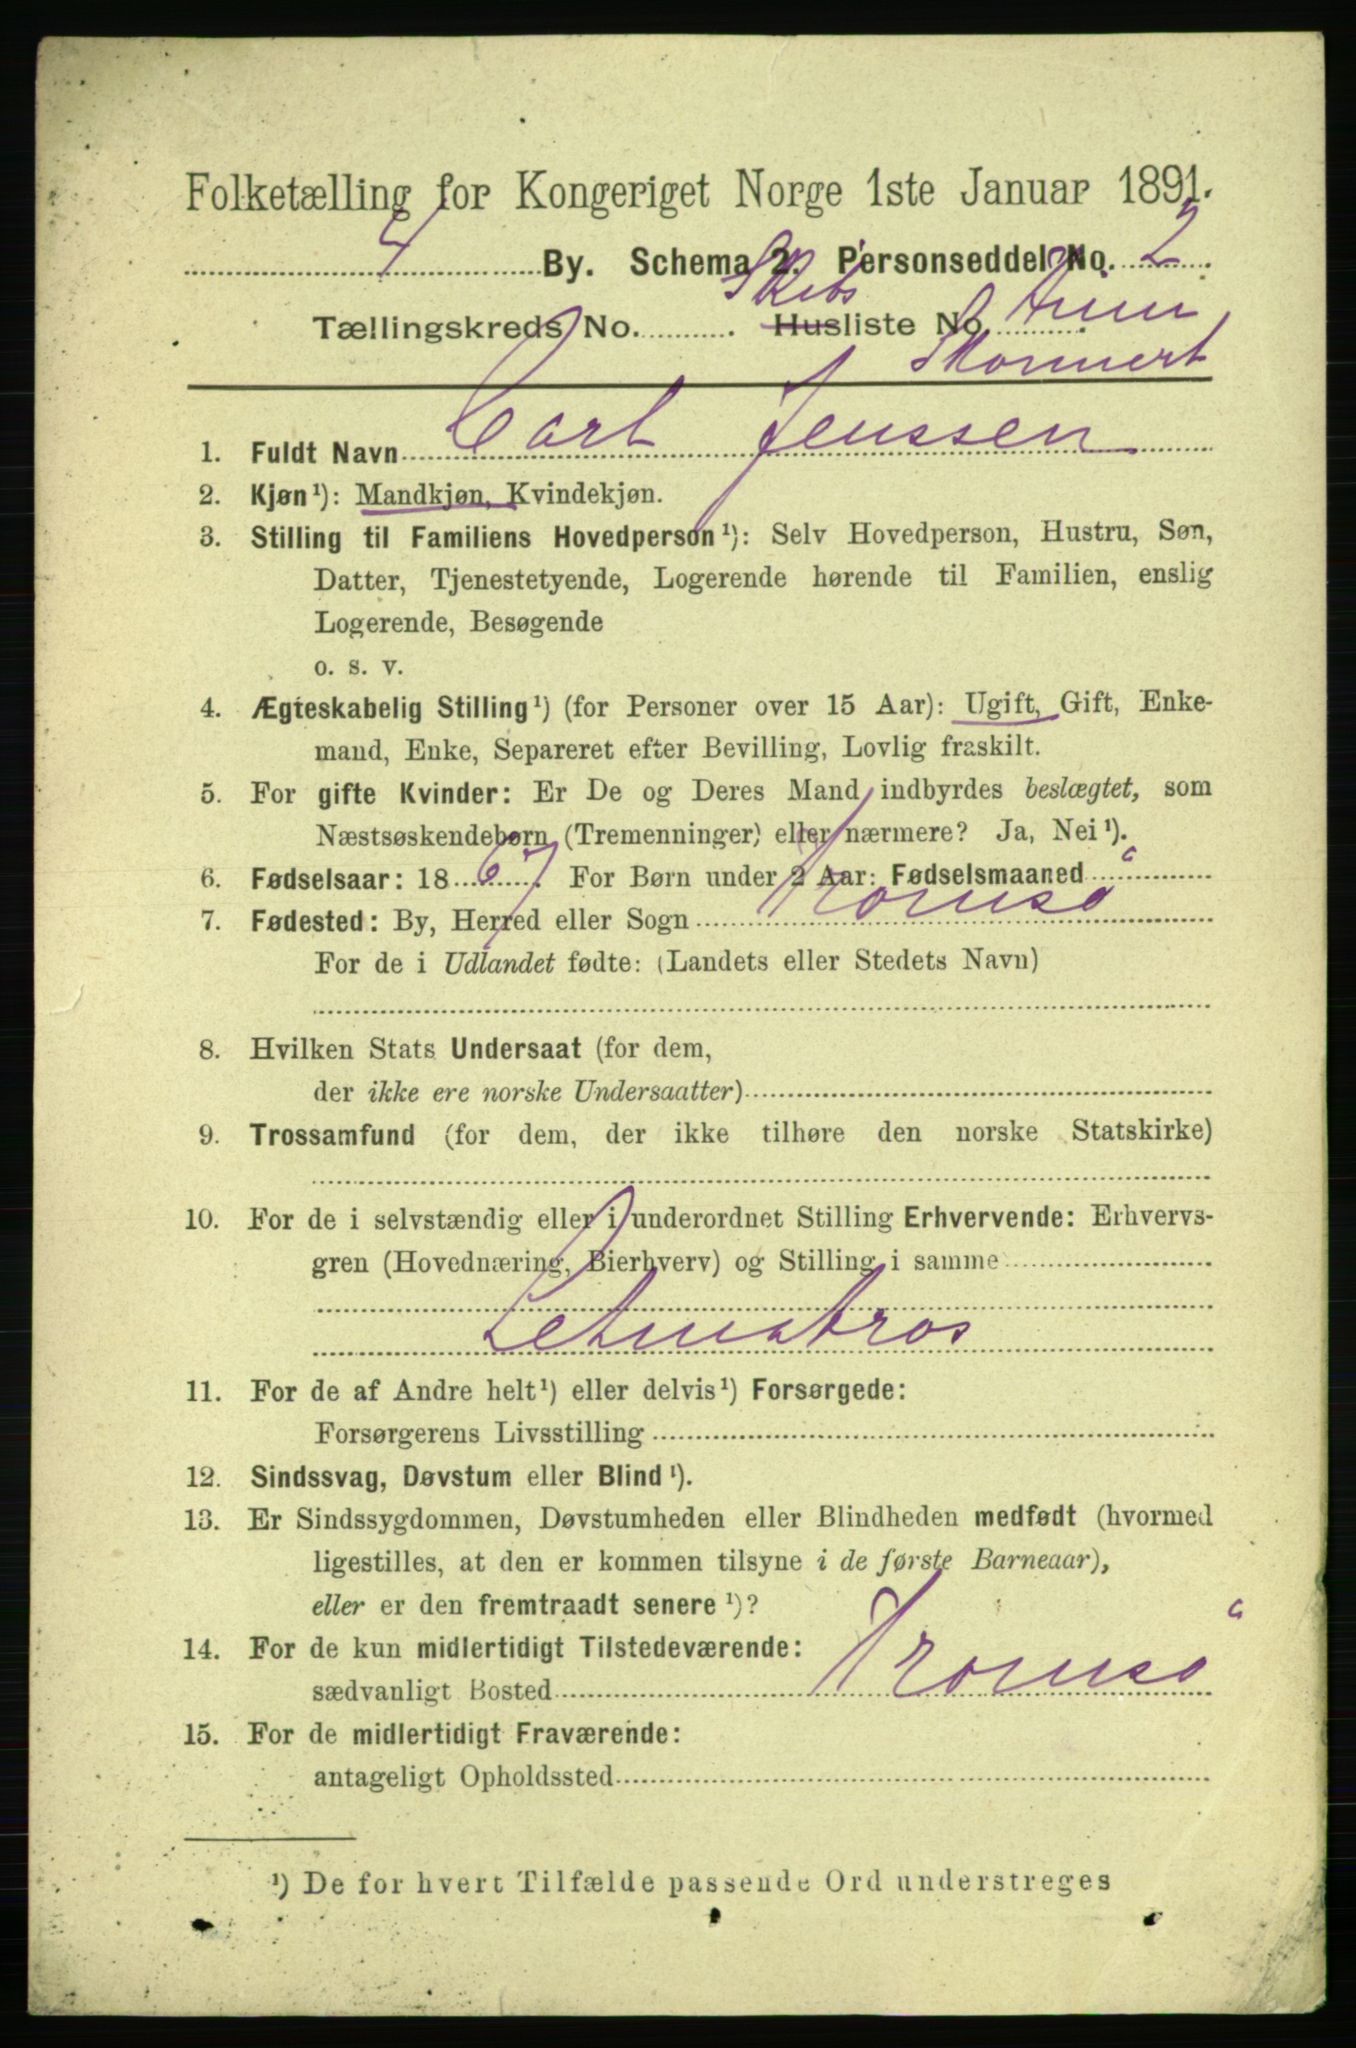 Folketælling for Kongeriget Norge 1ste Januar 1891.
4 By. Schema 2. Personseddel No. 2
Skibs
Tællingskreds No. Husliste No.
1. Fuldt Navn Carl Jenssen
2. Kjøn¹): Mandkjøn, Kvindekjøn.
3. Stilling til Familiens Hovedperson¹): Selv Hovedperson, Hustru, Søn,
Datter, Tjenestetyende, Logerende hørende til Familien, enslig
Logerende, Besøgende
o. s. v.
4. Ægteskabelig Stilling¹) (for Personer over 15 Aar): Ugift, Gift, Enke-
mand, Enke, Separeret efter Bevilling, Lovlig fraskilt.
5. For gifte Kvinder: Er De og Deres Mand indbyrdes beslægtet, som
Næstsøskendebørn (Tremenninger) eller nærmere? Ja, Nei¹).
6. Fødselsaar: 1867. For Børn under 2 Aar: Fødselsmaaned
7. Fødested: By, Herred eller Sogn Tromsø
For de i Udlandet fødte: (Landets eller Stedets Navn)
8. Hvilken Stats Undersaat (for dem,
der ikke ere norske Undersaatter)
9. Trossamfund (for dem, der ikke tilhøre den norske Statskirke)
10. For de i selvstændig eller i underordnet Stilling Erhvervende: Erhvervs-
gren (Hovednæring, Bierhverv) og Stilling i samme
Letmatros
11. For de af Andre helt¹) eller delvis¹) Forsørgede:
Forsørgerens Livsstilling
12. Sindssvag, Døvstum eller Blind¹).
13. Er Sindssygdommen, Døvstumheden eller Blindheden medfødt (hvormed
ligestilles, at den er kommen tilsyne i de første Barneaar),
eller er den fremtraadt senere¹)?
14. For de kun midlertidigt Tilstedeværende:
sædvanligt Bosted Tromsø
15. For de midlertidigt Fraværende:
antageligt Opholdssted
¹) De for hvert Tilfælde passende Ord understreges